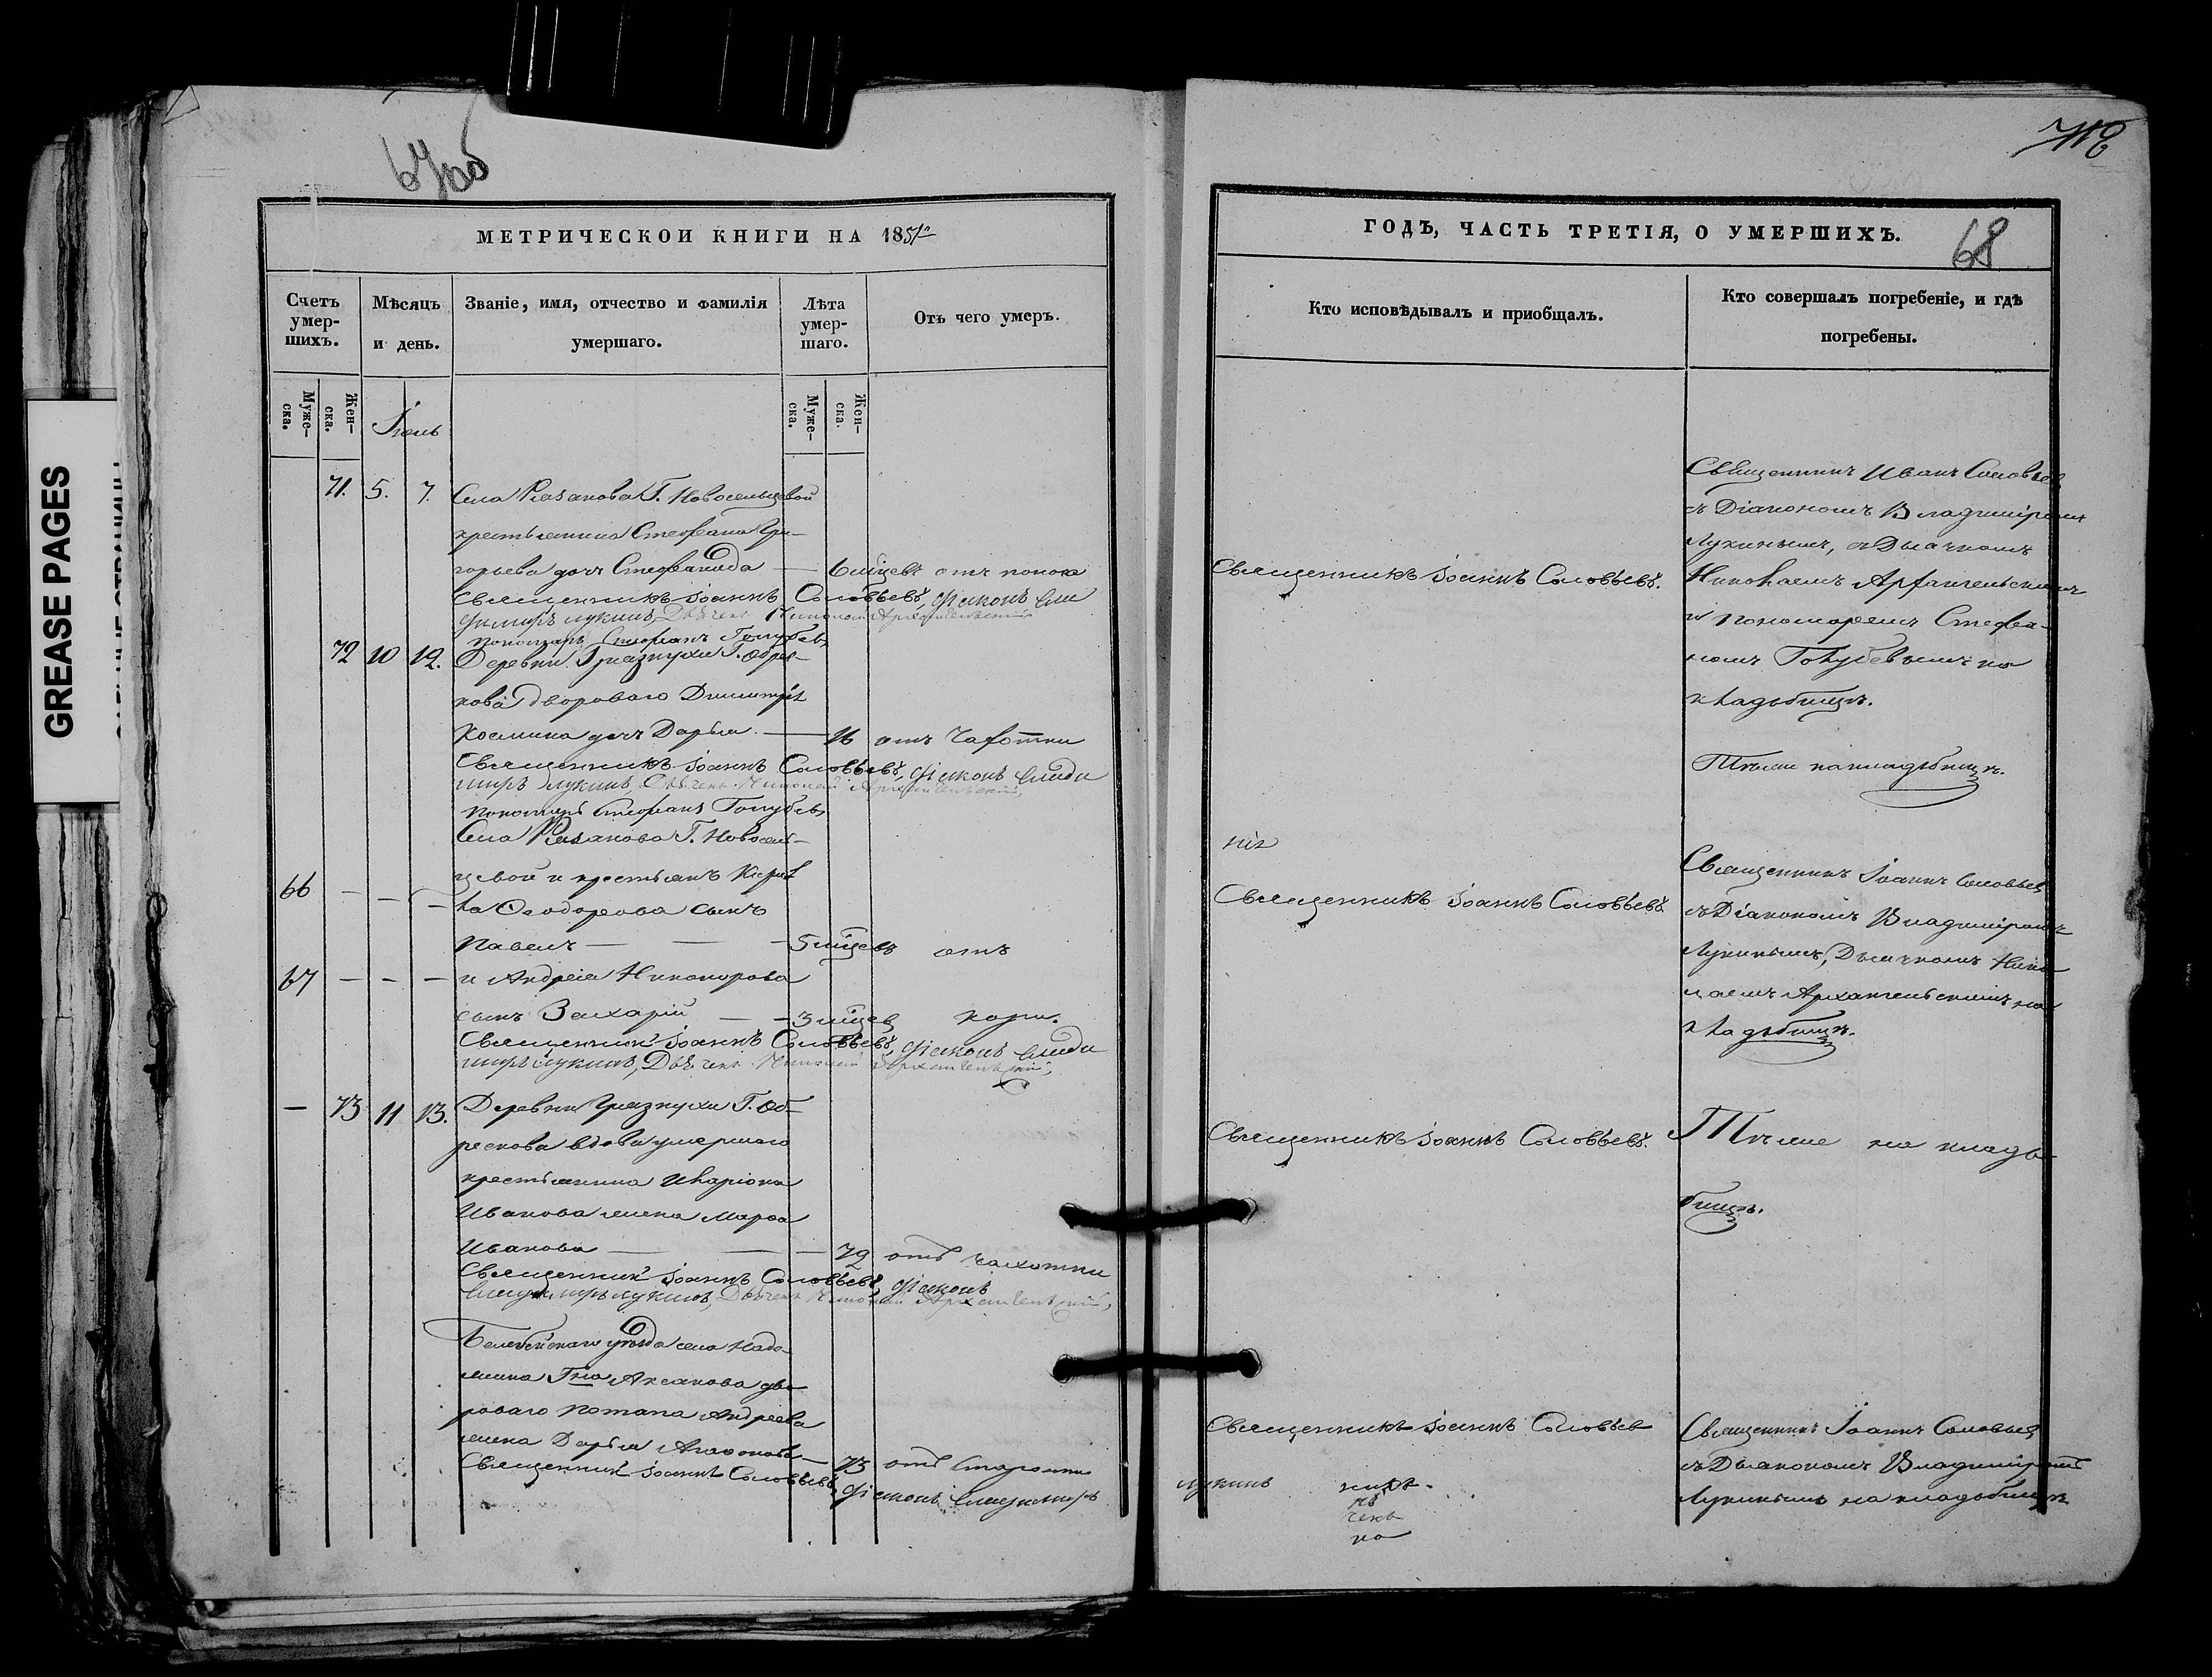 67об
МЕТРИЧЕСКОЙ КНИГИ НА 1851
Счетъ умер-шихъ.
Мѣсяцъ и день.
Званіе, имя, отчество и фамилія умершаго.
Лѣта умер-шаго.
Отъ чего умеръ.
Муже-ска.
Жен-ска.
Муже-ска.
Жен-ска.
71. 5. 7. Села Рязанова Г. Новосельцевой
крестьянина Стефана Гри-
горьева дочь Стефанида — 6 мѣцевъ отъ поноса
Священникъ Іоаннъ Соловьевъ, Діаконъ Вла
димиръ Лукинъ, Дьячекъ Николай Архангельскій
Пономарь Стефанъ Голубевъ
72 10 12. Деревни Грязнухи Г. Обрес-
кова двороваго Димитрія
Космина дочь Дарья — 16 отъ Чахотки
Священникъ Іоаннъ Соловьевъ, Діаконъ Влади
миръ Лукинъ, Дьячекъ Николай Архангельскій,
Пономарь Стефанъ Голубевъ
Села Рязанова Г. Новосель-
цевой и крестьянъ Кирил
66 — — — ла Ѳеодорова сынъ
Павелъ — — — 5 мѣцевъ отъ
67 — — — и Андрея Никонорова
сынъ Захарій — — 3 мѣцев кори.
Священник Іоаннъ Соловьевъ, Діаконъ Влади
миръ Лукинъ, Дьячекъ Николай Архангельскій,
— 73 11 13. Деревни Грязнухи Г. Об-
рескова вдова умершаго
крестьянина Иларіона
Иванова жена Марѳа
Иванова — — — 72 отъ чахотки
Священник Іоаннъ Соловьевъ, Діаконъ
Владимиръ Лукинъ, Дьячекъ Николай Архангельскій,
Белебейскаго уѣзда села Наде
жина Гна Аксакова дво
роваго Потапа Андреева
жена Дарья Агаѳонова — 73 отъ Старости
Священник Іоаннъ Соловьевъ,
Діаконъ Владимиръ
ГОДЪ, ЧАСТЬ ТРЕТІЯ, О УМЕРШИХЪ.
68
Кто исповѣдывалъ и приобщалъ.
Кто совершалъ погребеніе, и гдѣ погребены.
Священникъ Іоаннъ Соловьевъ.
Священникъ Иванъ Соловьев
съ Діакономъ Владиміромъ
Лукинымъ, съ Дьячкомъ
Николаемъ Архангельскимъ
и пономаремъ Стефа-
номъ Голубевымъ на
кладьбищѣ.
Тѣже на кладьбищѣ.
Священникъ Іоаннъ Соловьевъ
Священникъ Іоаннъ Соловьев
съ Діакономъ Владиміромъ
Лукинымъ, Дьячкомъ Нико
лаемъ Архангельскимъ на
кладьбищѣ.
Священникъ Іоаннъ Соловьевъ.
Тѣже на кладь
бищѣ.
Священникъ Іоаннъ Соловьев
Лукинъ
Священникъ Іоаннъ Соловьев
съ Дьякономъ Владиміромъ
Лукинымъ на кладьбищѣ
GREASE PAGES